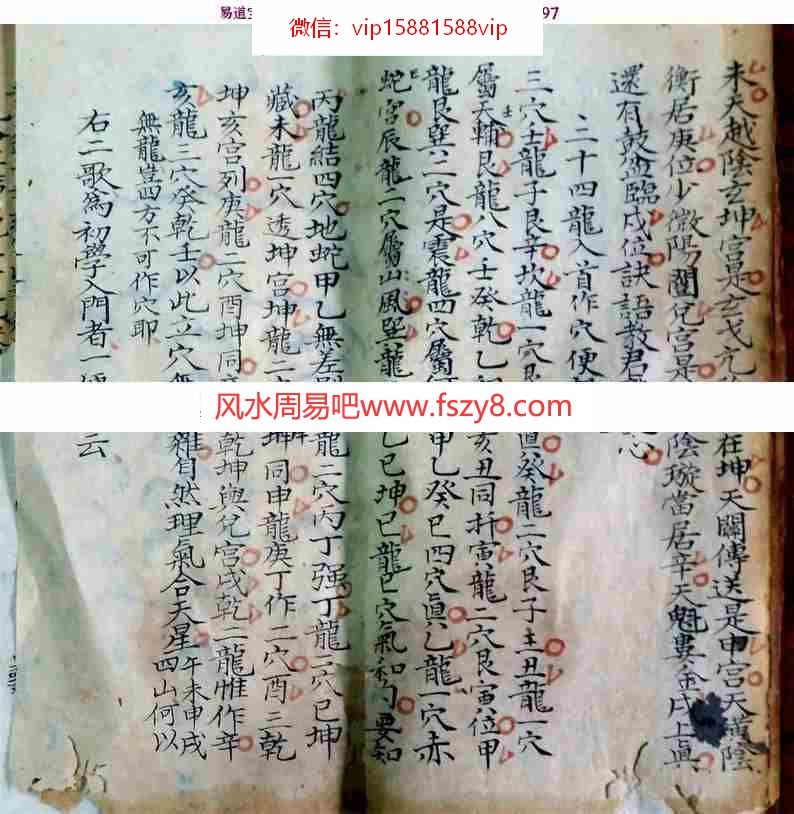 易道
97
微信：vip15881588vip
未天越陰玄坤宮是玄戈
在坤天關傳送是申宮天潢陰
衡居庚位少微陽闔兌宮是
陰璇當居辛天魁婁金戌上眞
還有鼓盆臨戌位訣語教君
心
二十四龍入首作穴便
三穴壬龍子艮辛坎龍一穴
眞癸龍二穴艮子壬丑龍一穴
屬天輔艮龍八穴壬癸乾乙
亥丑同扦寅龍二穴艮寅位甲
龍艮巽二穴是震龍四穴屬
甲乙癸巳四穴眞乙龍一穴赤
蛇宮辰龍一穴屬山風巽龍
乙巳坤巳龍巳穴氣和勻要知
丙龍結四穴地蛇甲乙無差
龍二穴丙丁强丁龍一穴巳坤
藏未龍一穴透坤宮坤龍二
坤同申龍庚丁作二穴酉三乾
坤亥宮列庚龍二穴酉坤同
乾坤與兌宮戌乾二龍惟作辛
亥龍三穴癸乾壬以此立穴無
雜自然理氣合天星午未申戌
四山何以
無龍豈四方不可作穴耶
右二歌爲初學入門者一
云
风水周易吧www.fszy8.com